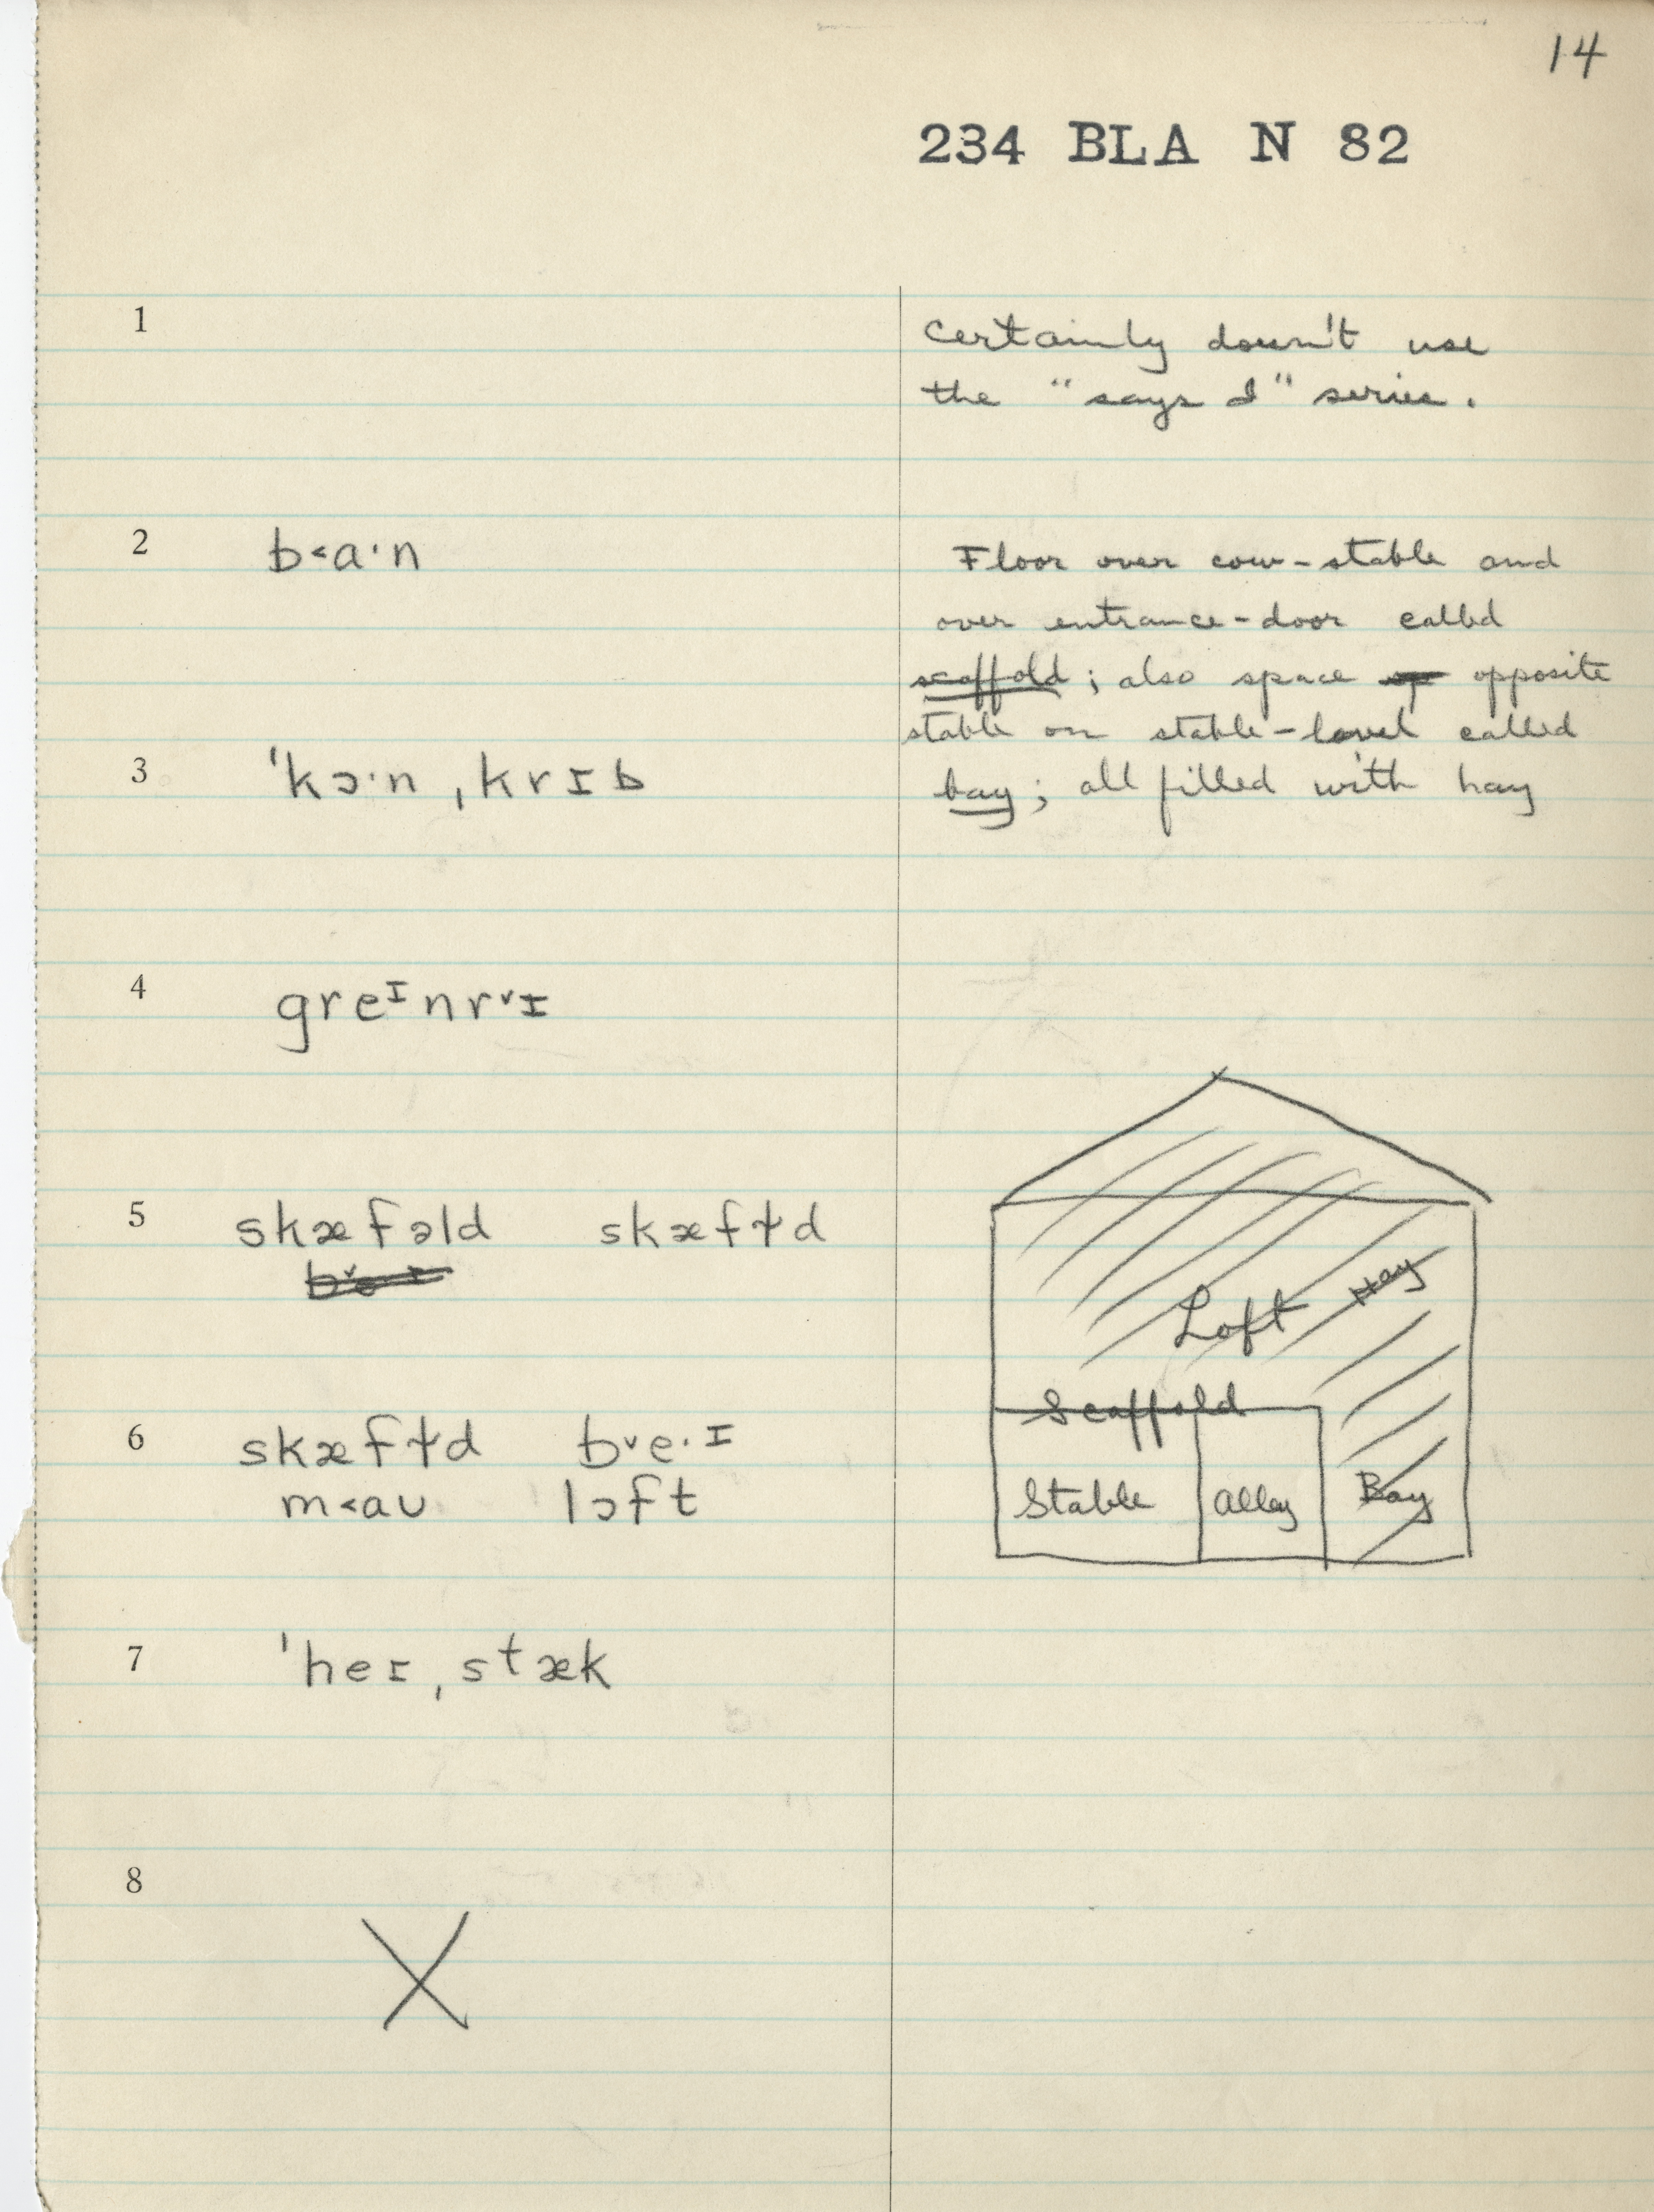 14
234 BLA N 82
1
Certainly doesn't use
the "says I" series.
2
b˂a·n
Floor over cow-stable and
over entrance-door called
scaffold; also space opposite
stable on stable-level called
bay; all filled with hay
3
ˈkɔ·n ˌkrɪb
4
greᶦnr˅ɪ
5
skæfəld skæfɫd
6
skæfɫd b˅e·ɪ
m˂aʊ lɔft
Loft Hay
Scaffold
Stable Alley Bay
7
ˈheɪ ˌstæk
8
X